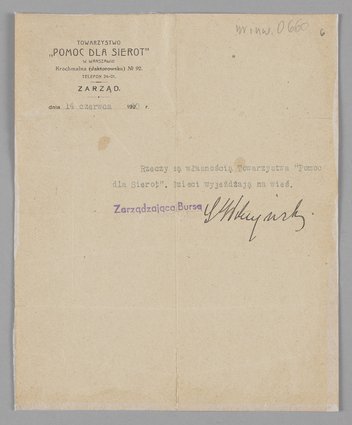 nr inw. D 660
6
TOWARZYSTWO
„POMOC DLA SIEROT"
W WARSZAWIE
Krochmalna (daktorowska) № 92.
TELEFON 24-01.
ZARZĄD.
dnia 14 czerwca 1920 r.
Rzeczy są własnością Towarzystwa "Pomoc
dla Sierot". Dzieci wyjeżdżają na wieś.
Zarządzająca Bursą